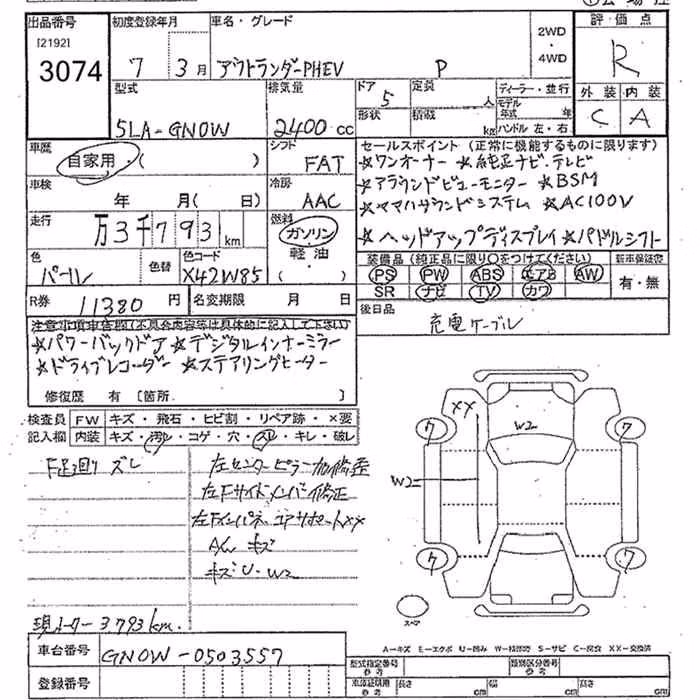 出品番号 初度登録年月 車名・グレード 2WD・4WD 評価点
[2192]
3074 7 3月 アウトランダーPHEV P R
型式 排気量 ドア 5 定員 人 ディーラー・並行 外装 内装
5LA-GN0W 2400cc 形状 積載 kg モデル年式 年 C A
ハンドル 左・右
車歴 自家用・( ) シフト FAT セールスポイント (正常に機能するものに限ります)
☆ワンオーナー ☆純正ナビ・テレビ
車検 年 月( 日) 冷房 AAC ☆アラウンドビューモニター ☆BSM
☆ヤマハサウンドシステム ☆AC100V
走行 万3千793km 燃料 ガソリン 軽油 ( )
☆ヘッドアップディスプレイ ☆パドルシフト
色 パール 色替 色コード X42W85
装備品 (純正品に限り○をつけてください) 新車保証書
PS PW ABS エアB AW 有・無
SR ナビ TV カワ
R券 11380円 名変期限 月 日
後日品 充電ケーブル
注意事項車告書(不具合内容等は具体的に記入して下さい)
☆パワーバックドア ☆デジタルインナーミラー
☆ドライブレコーダー ☆ステアリングヒーター
修復歴 有 [箇所 ]
検査員 FW キズ・飛石・ヒビ割・リペア跡・×要
記入欄 内装 キズ・汚レ・コゲ・穴・スレ・キレ・破レ
F足廻り ズレ
左センターピラー加修歪
左Fサイドメンバー修正
左Fインパネ、コアサポートXX
AW キズ
キズ・U・W2
現メーター3793km.
XX W2 7 7
W2
7 7
スペア
A-キズ E-エクボ U-凹み W-補修跡 S-サビ C-腐食 XX-交換済
車台番号 GN0W-0503557
登録番号
型式指定番号 参考 類別区分番号 参考
車体証明用 参考 長さ cm 幅 cm 高さ cm